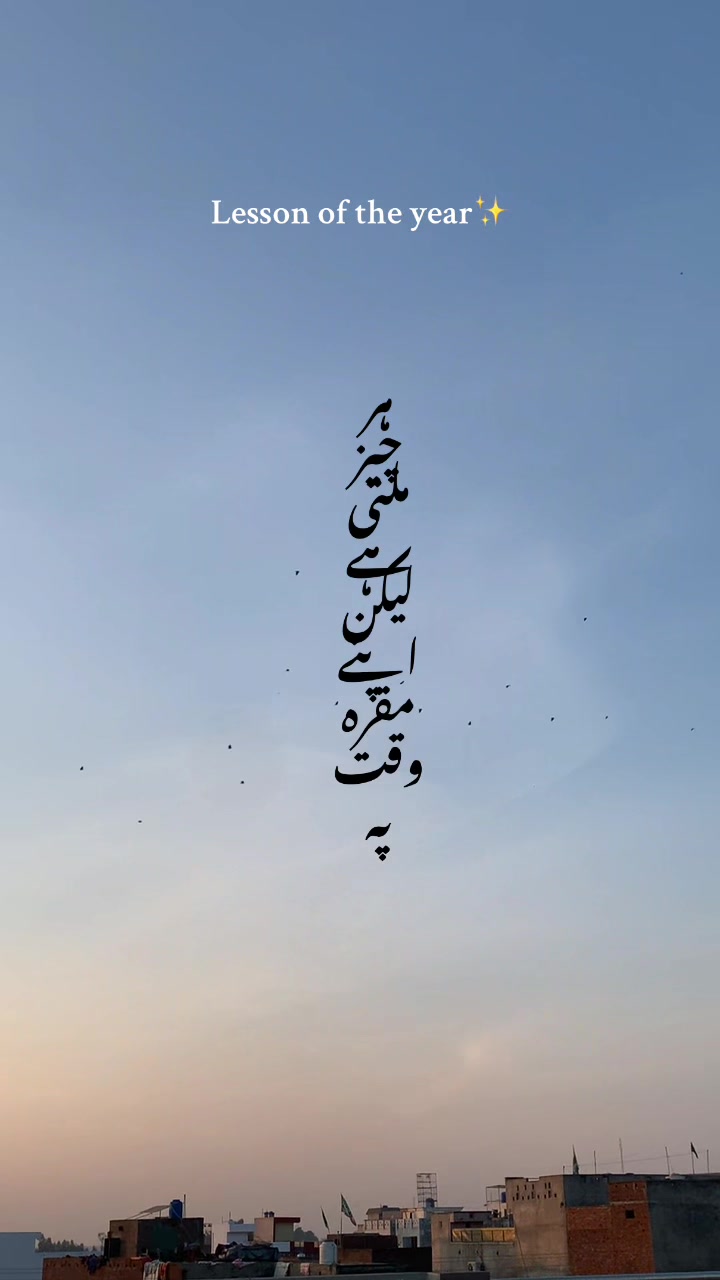 Lesson of the year✨
ہر
چیز
ملتی
ہے
لیکن
اپنے
مقرہ
وقت
پہ